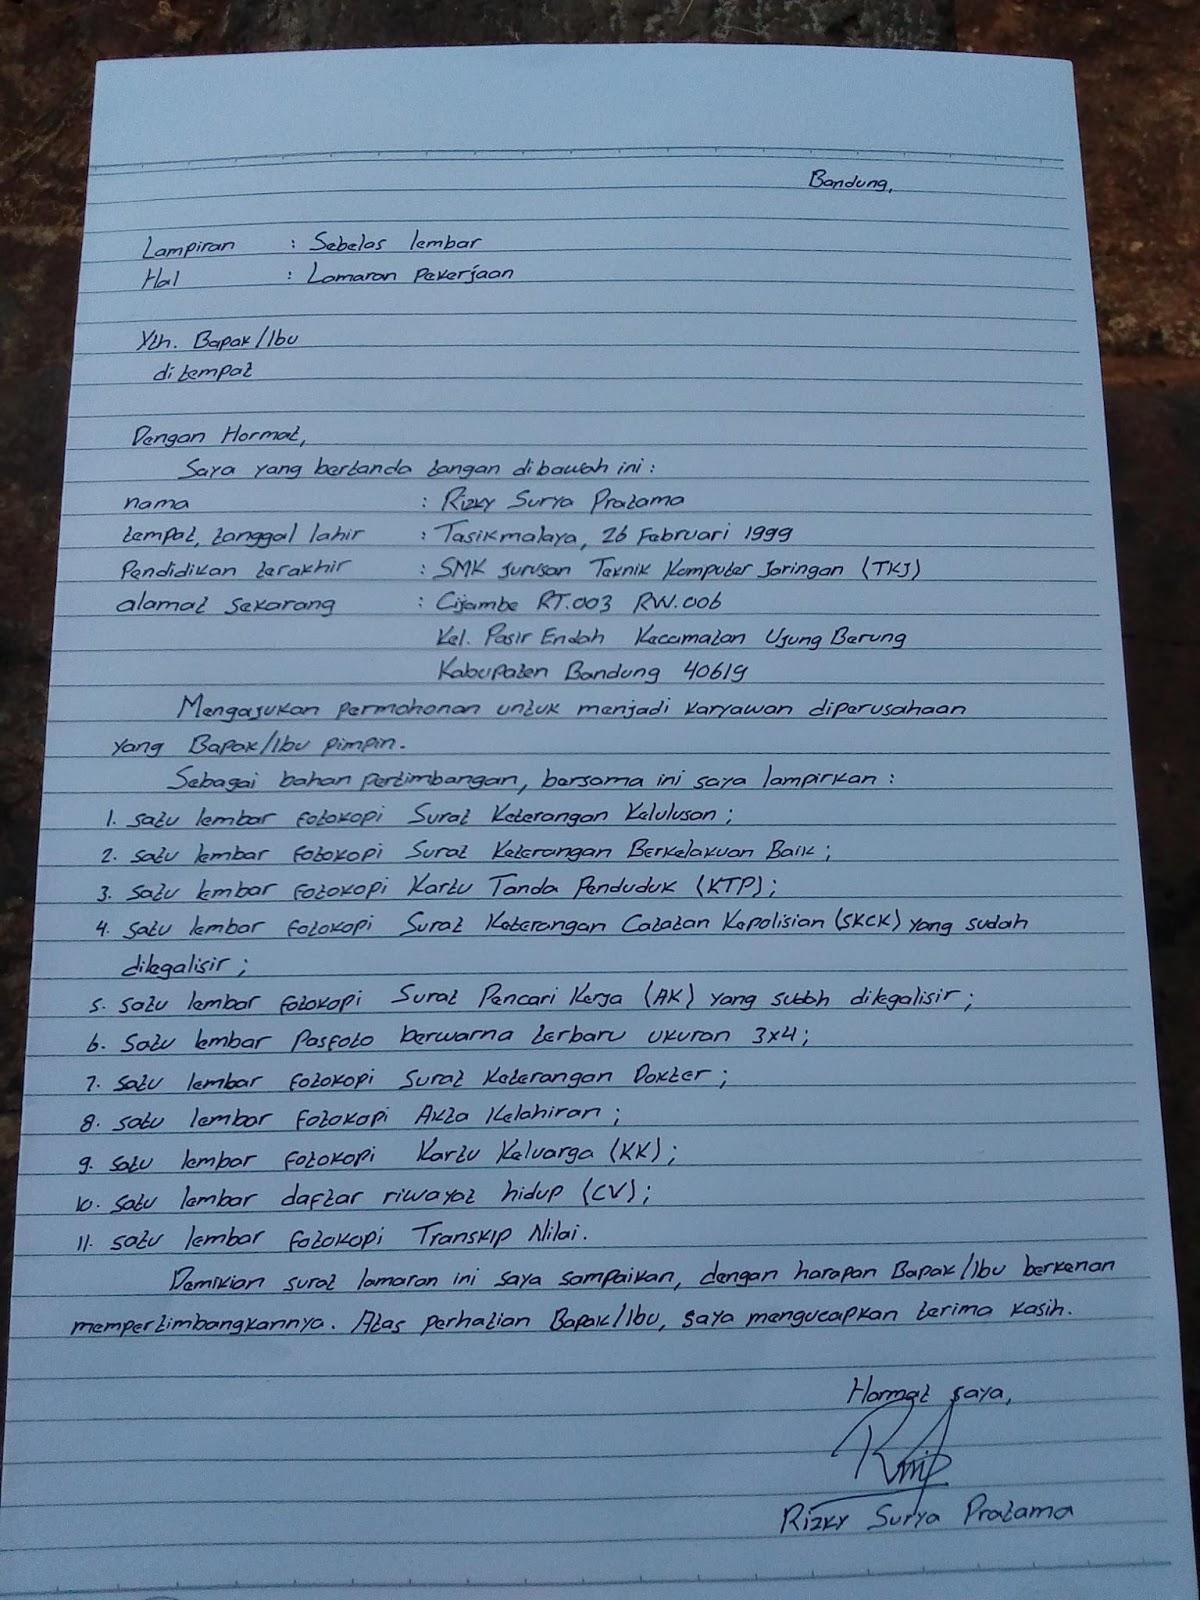 Bandung,
Lampiran : Sebelas lembar
Hal : Lamaran Pekerjaan
Yth. Bapak/Ibu
di tempat
Dengan Hormat,
Saya yang bertanda tangan dibawah ini :
nama : Rizky Surya Pratama
tempat, tanggal lahir : Tasikmalaya, 26 Februari 1999
Pendidikan terakhir : SMK Jurusan Teknik Komputer Jaringan (TKJ)
alamat sekarang : Cijambe RT.003 RW.006
Kel. Pasir Endah Kecamatan Ujung Berung
Kabupaten Bandung 40619
Mengajukan permohonan untuk menjadi karyawan diperusahaan
yang Bapak/Ibu pimpin.
Sebagai bahan pertimbangan, bersama ini saya lampirkan :
1. satu lembar fotokopi Surat Keterangan Kelulusan ;
2. satu lembar fotokopi Surat Keterangan Berkelakuan Baik ;
3. satu lembar fotokopi Kartu Tanda Penduduk (KTP) ;
4. satu lembar fotokopi Surat Keterangan Catatan Kepolisian (SKCK) yang sudah
dilegalisir ;
5. satu lembar fotokopi Surat Pencari Kerja (AK) yang sudah dilegalisir ;
6. satu lembar Pasfoto berwarna terbaru ukuran 3x4 ;
7. satu lembar fotokopi Surat Keterangan Dokter ;
8. satu lembar fotokopi Akta Kelahiran ;
9. satu lembar fotokopi Kartu Keluarga (KK) ;
10. satu lembar daftar riwayat hidup (CV) ;
11. satu lembar fotokopi Transkip Nilai.
Demikian surat lamaran ini saya sampaikan, dengan harapan Bapak/Ibu berkenan
mempertimbangkannya. Atas perhatian Bapak/Ibu, saya mengucapkan terima kasih.
Hormat saya,
Rizky Surya Pratama